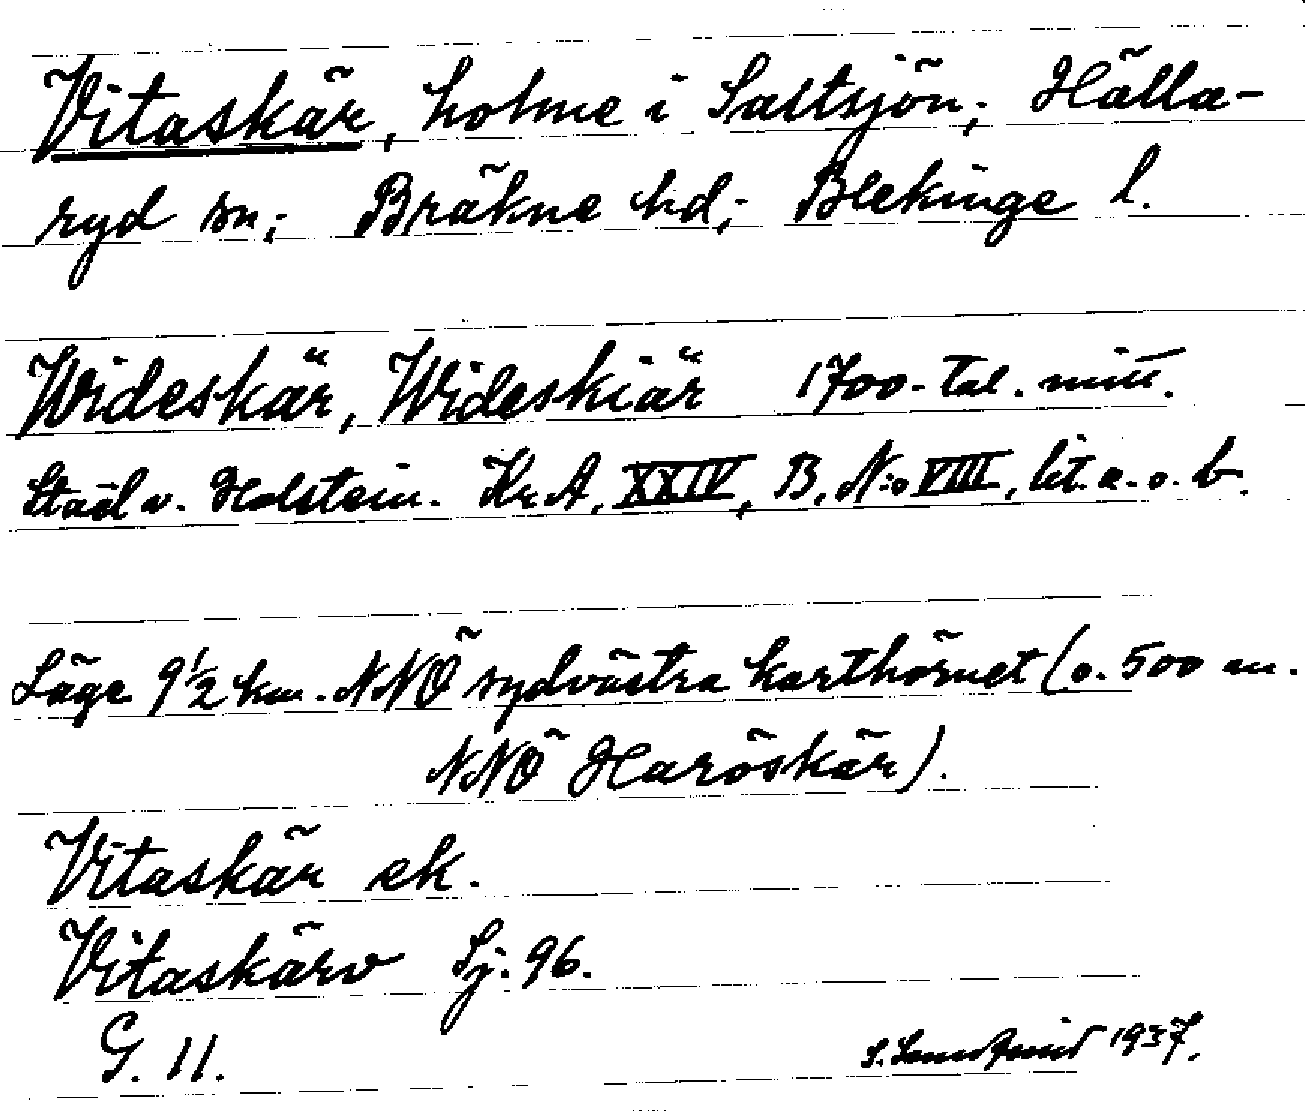 Vitaskär, holme i Saltsjön; Hälla-
ryd sn; Bräkne hd; Blekinge l.
Wideskär, Wideskiär 1700-tal. mitt.
Staël v. Holstein. Kr. A. XXIV, B, N:o VIII, lit. a. o. b.
Läge 9 1/2 km. NNÖ sydvästra karthörnet (o. 500 m.
NNÖ Haröskär).
Vitaskär ek.
Vitaskärv Sj. 96.
G. 11. S. 1937.